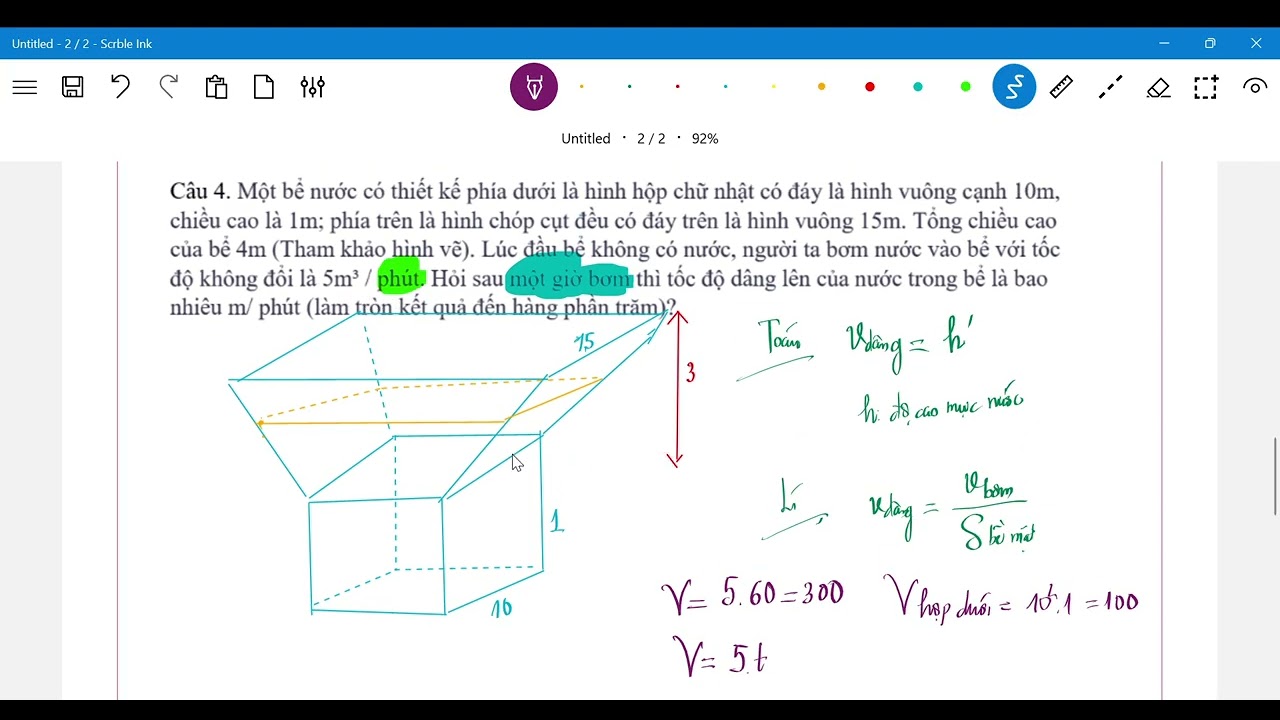 Untitled - 2 / 2 - Scrble Ink
Untitled · 2 / 2 · 92%
Câu 4. Một bể nước có thiết kế phía dưới là hình hộp chữ nhật có đáy là hình vuông cạnh 10m,
chiều cao là 1m; phía trên là hình chóp cụt đều có đáy trên là hình vuông 15m. Tổng chiều cao
của bể 4m (Tham khảo hình vẽ). Lúc đầu bể không có nước, người ta bơm nước vào bể với tốc
độ không đổi là 5m³ / phút. Hỏi sau một giờ bơm thì tốc độ dâng lên của nước trong bể là bao
nhiêu m/ phút (làm tròn kết quả đến hàng phần trăm)?
15
3
Toán Vdâng = h'
h: độ cao mực nước
Lí Vdâng = Vbơm / S bề mặt
1
10
V = 5.60 = 300 V hộp dưới = 10².1 = 100
V = 5.t